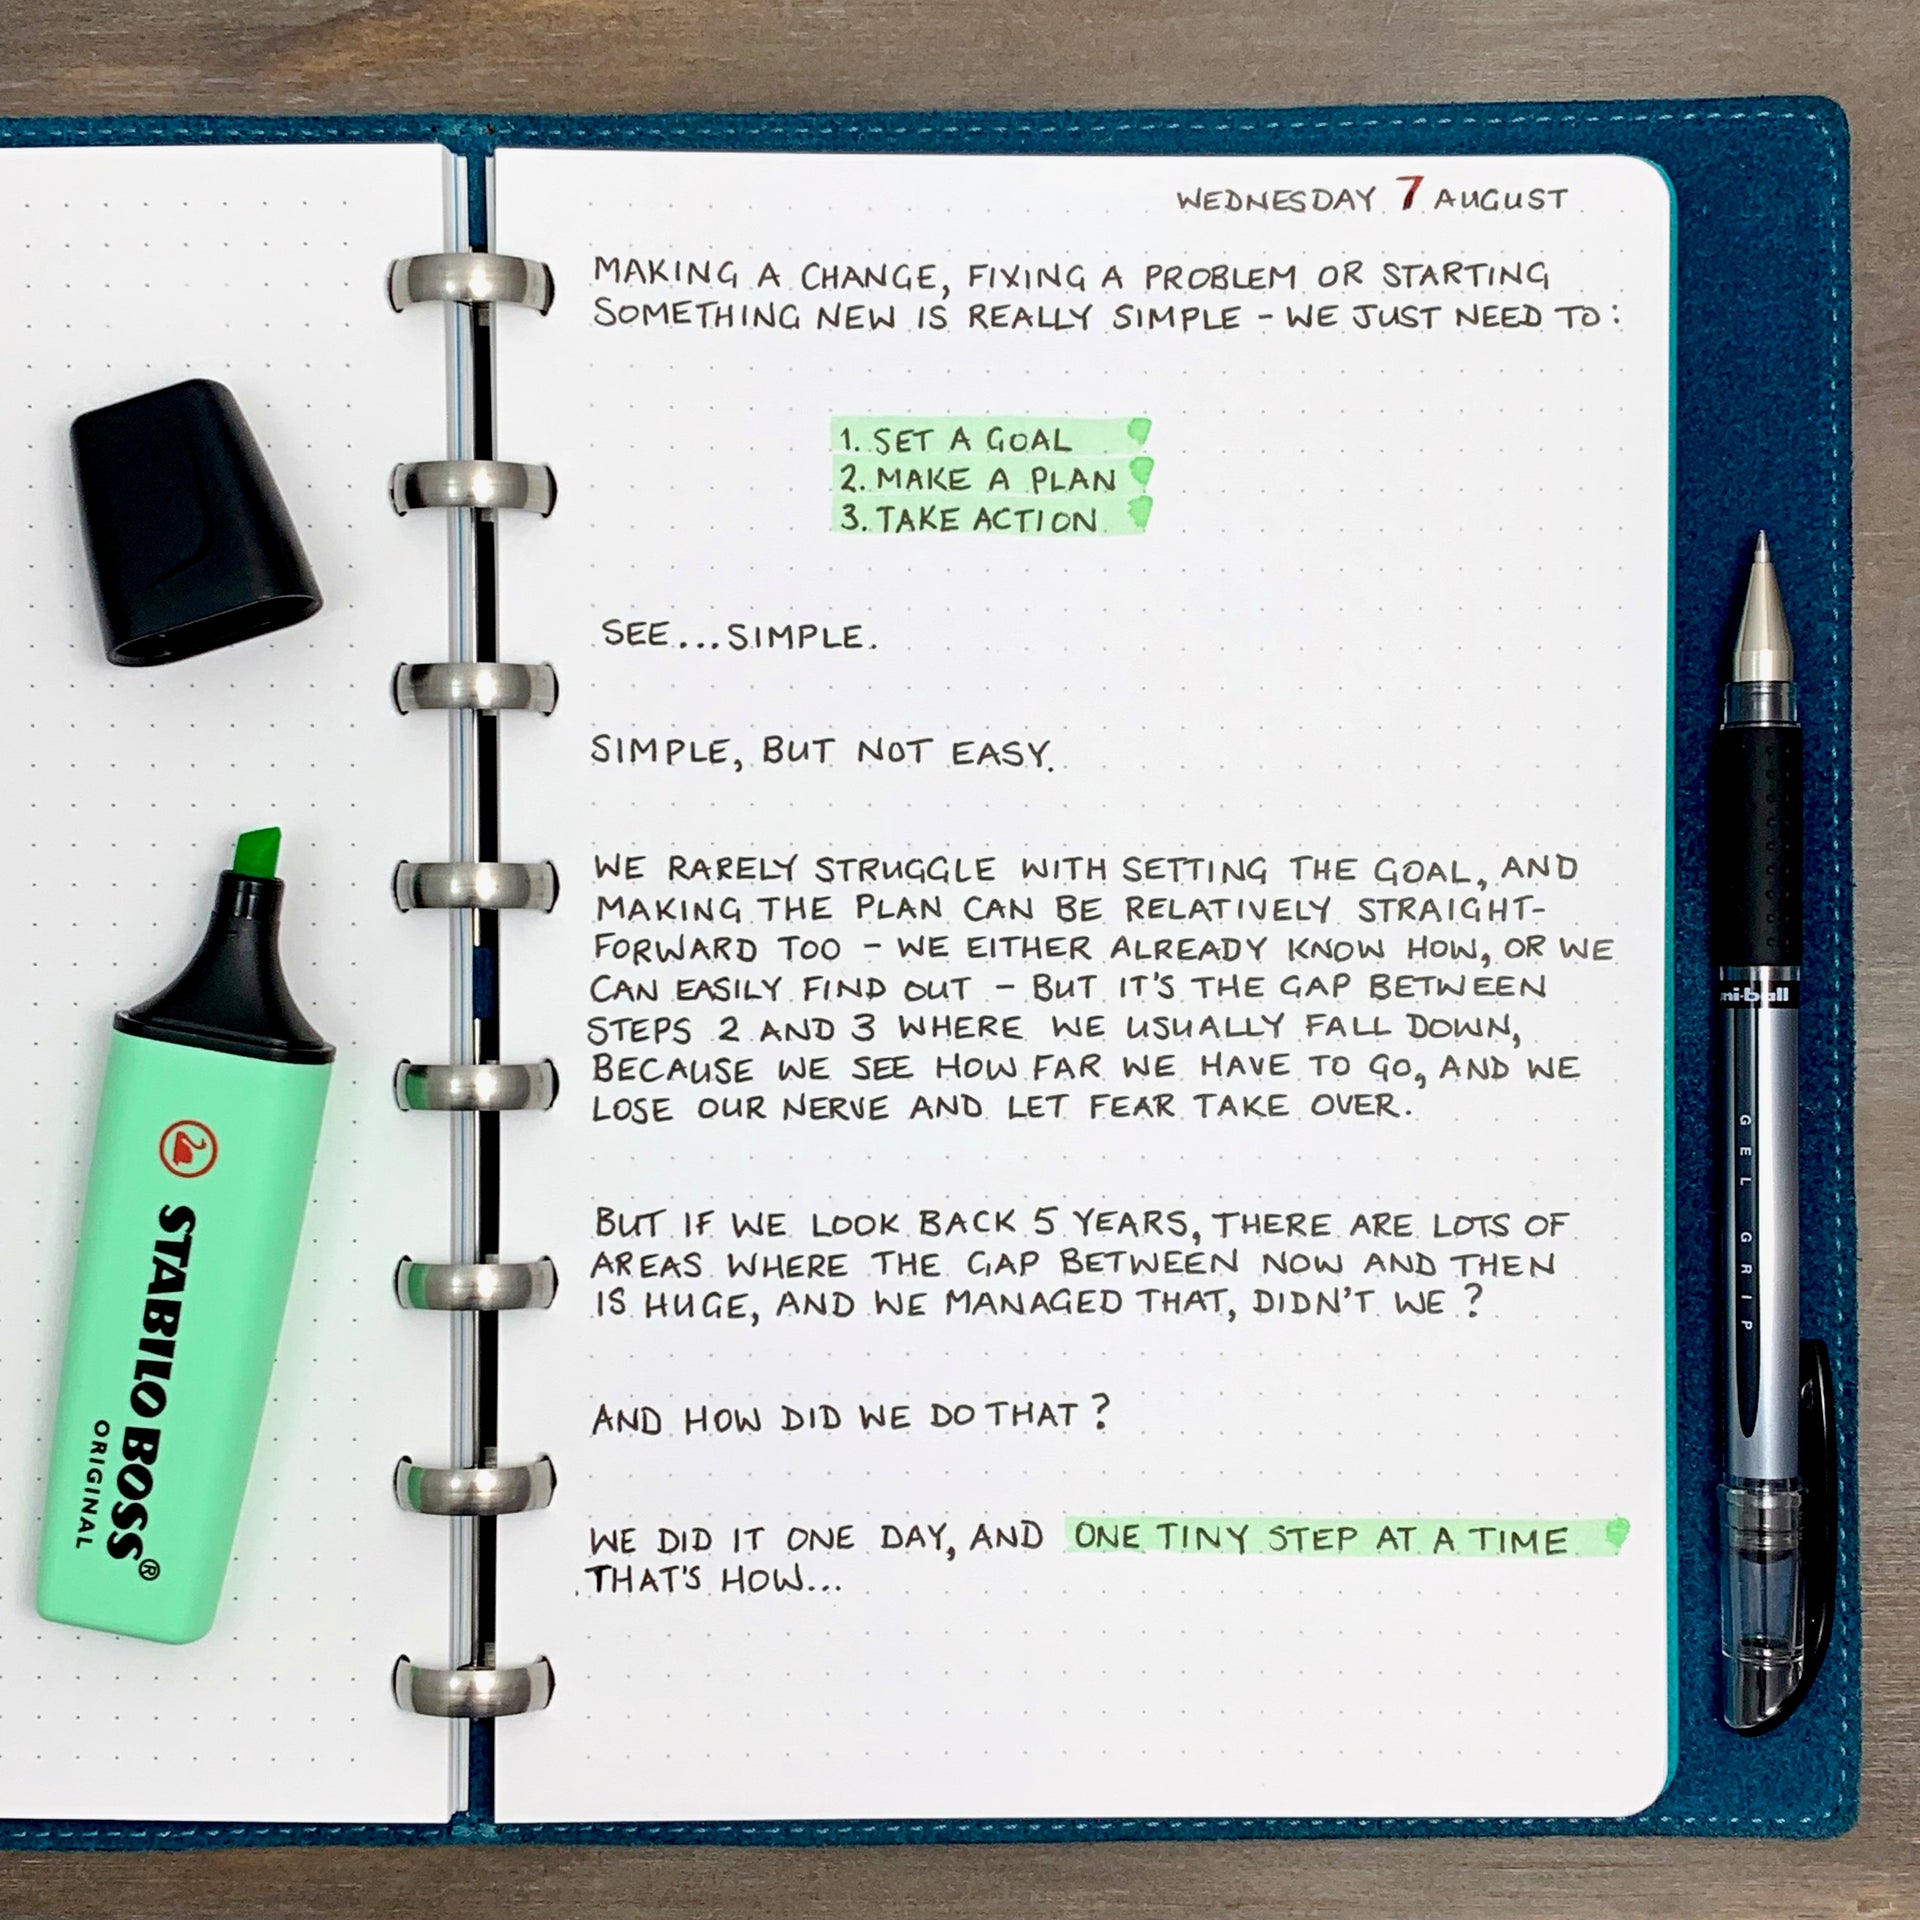 WEDNESDAY 7 AUGUST
MAKING A CHANGE, FIXING A PROBLEM OR STARTING
SOMETHING NEW IS REALLY SIMPLE - WE JUST NEED TO:
1. SET A GOAL
2. MAKE A PLAN
3. TAKE ACTION
SEE...SIMPLE.
SIMPLE, BUT NOT EASY.
WE RARELY STRUGGLE WITH SETTING THE GOAL, AND
MAKING THE PLAN CAN BE RELATIVELY STRAIGHT-
FORWARD TOO - WE EITHER ALREADY KNOW HOW, OR WE
CAN EASILY FIND OUT - BUT IT'S THE GAP BETWEEN
STEPS 2 AND 3 WHERE WE USUALLY FALL DOWN,
BECAUSE WE SEE HOW FAR WE HAVE TO GO, AND WE
LOSE OUR NERVE AND LET FEAR TAKE OVER.
BUT IF WE LOOK BACK 5 YEARS, THERE ARE LOTS OF
AREAS WHERE THE GAP BETWEEN NOW AND THEN
IS HUGE, AND WE MANAGED THAT, DIDN'T WE?
AND HOW DID WE DO THAT?
WE DID IT ONE DAY, AND ONE TINY STEP AT A TIME
THAT'S HOW...
STABILO BOSS®
ORIGINAL
ni-ball
GEL GRIP